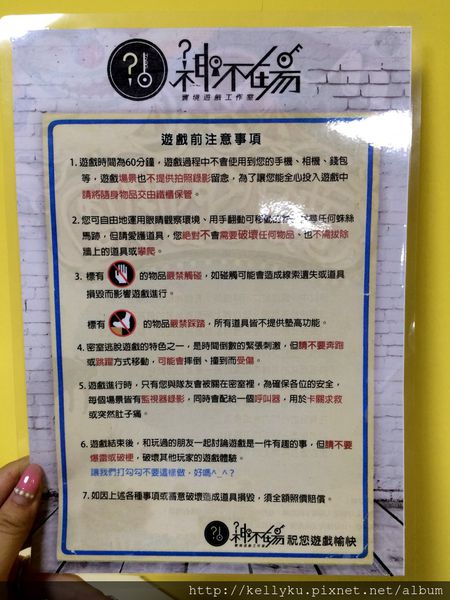 神不在場
實境遊戲工作室
遊戲前注意事項
1. 遊戲時間為60分鐘，遊戲過程中不會使用到您的手機、相機、錢包
等，遊戲場景也不提供拍照錄影留念，為了讓您能全心投入遊戲中
請將隨身物品交由鐵櫃保管。
2. 您可自由地運用眼睛觀察環境、用手翻動可移動的物 尋任何蛛絲
馬跡，但請愛護道具，您絕對不會需要破壞任何物品、也不需拔除
牆上的道具或攀爬。
3. 標有 的物品嚴禁觸碰，如碰觸可能會造成線索遺失或道具
損毀而影響遊戲進行。
標有 的物品嚴禁踩踏，所有道具皆不提供墊高功能。
4. 密室逃脫遊戲的特色之一，是時間倒數的緊張刺激，但請不要奔跑
或跳躍方式移動，可能會摔倒、撞到而受傷。
5. 遊戲進行時，只有您與隊友會被關在密室裡，為確保各位的安全，
每個場景皆有監視器錄影，同時會配給一個呼叫器，用於卡關求救
或突然肚子痛。
6. 遊戲結束後，和玩過的朋友一起討論遊戲是一件有趣的事，但請不要
爆雷或破梗，破壞其他玩家的遊戲體驗。
讓我們打勾勾不要這樣做，好嗎^_^？
7. 如因上述各種事項或蓄意破壞造成道具損毀，須全額照價賠償。
神不在場 祝您遊戲愉快
實境遊戲工作室
http://kellyku.pixnet.net/album